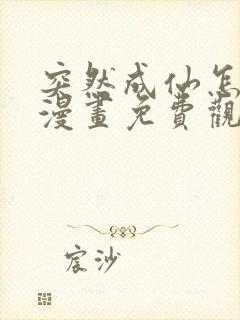 突然成仙怎
漫畫免費觀
宸沙